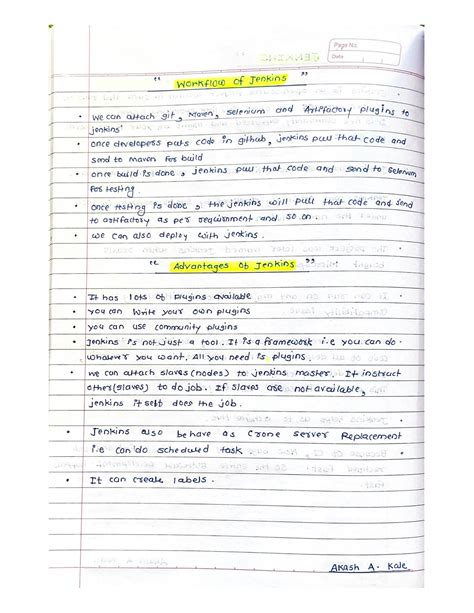 Page No.
Date
" Workflow of Jenkins "
• we can attach git, Maven, selenium and Artifactory plugins to
jenkins'
• once developers puts code in github, jenkins pull that code and
send to maven for build
• once build is done, jenkins pull that code and send to selenium
for testing.
• once testing is done, the jenkins will pull that code and send
to artifactory as per requirement and so on.
• we can also deploy with jenkins.
" Advantages of Jenkins "
• It has lots of plugins available
• you can write your own plugins
• you can use community plugins
• Jenkins is not just a tool. It is a framework i.e you can do
whatever you want. All you need is plugins.
• we can attach slaves (nodes) to jenkins master. It instruct
other (slaves) to do job. If slaves are not available,
jenkins itself does the job.
• Jenkins also behave as Crone server Replacement
i.e can do scheduled task
• It can create labels.
Akash A. Kale